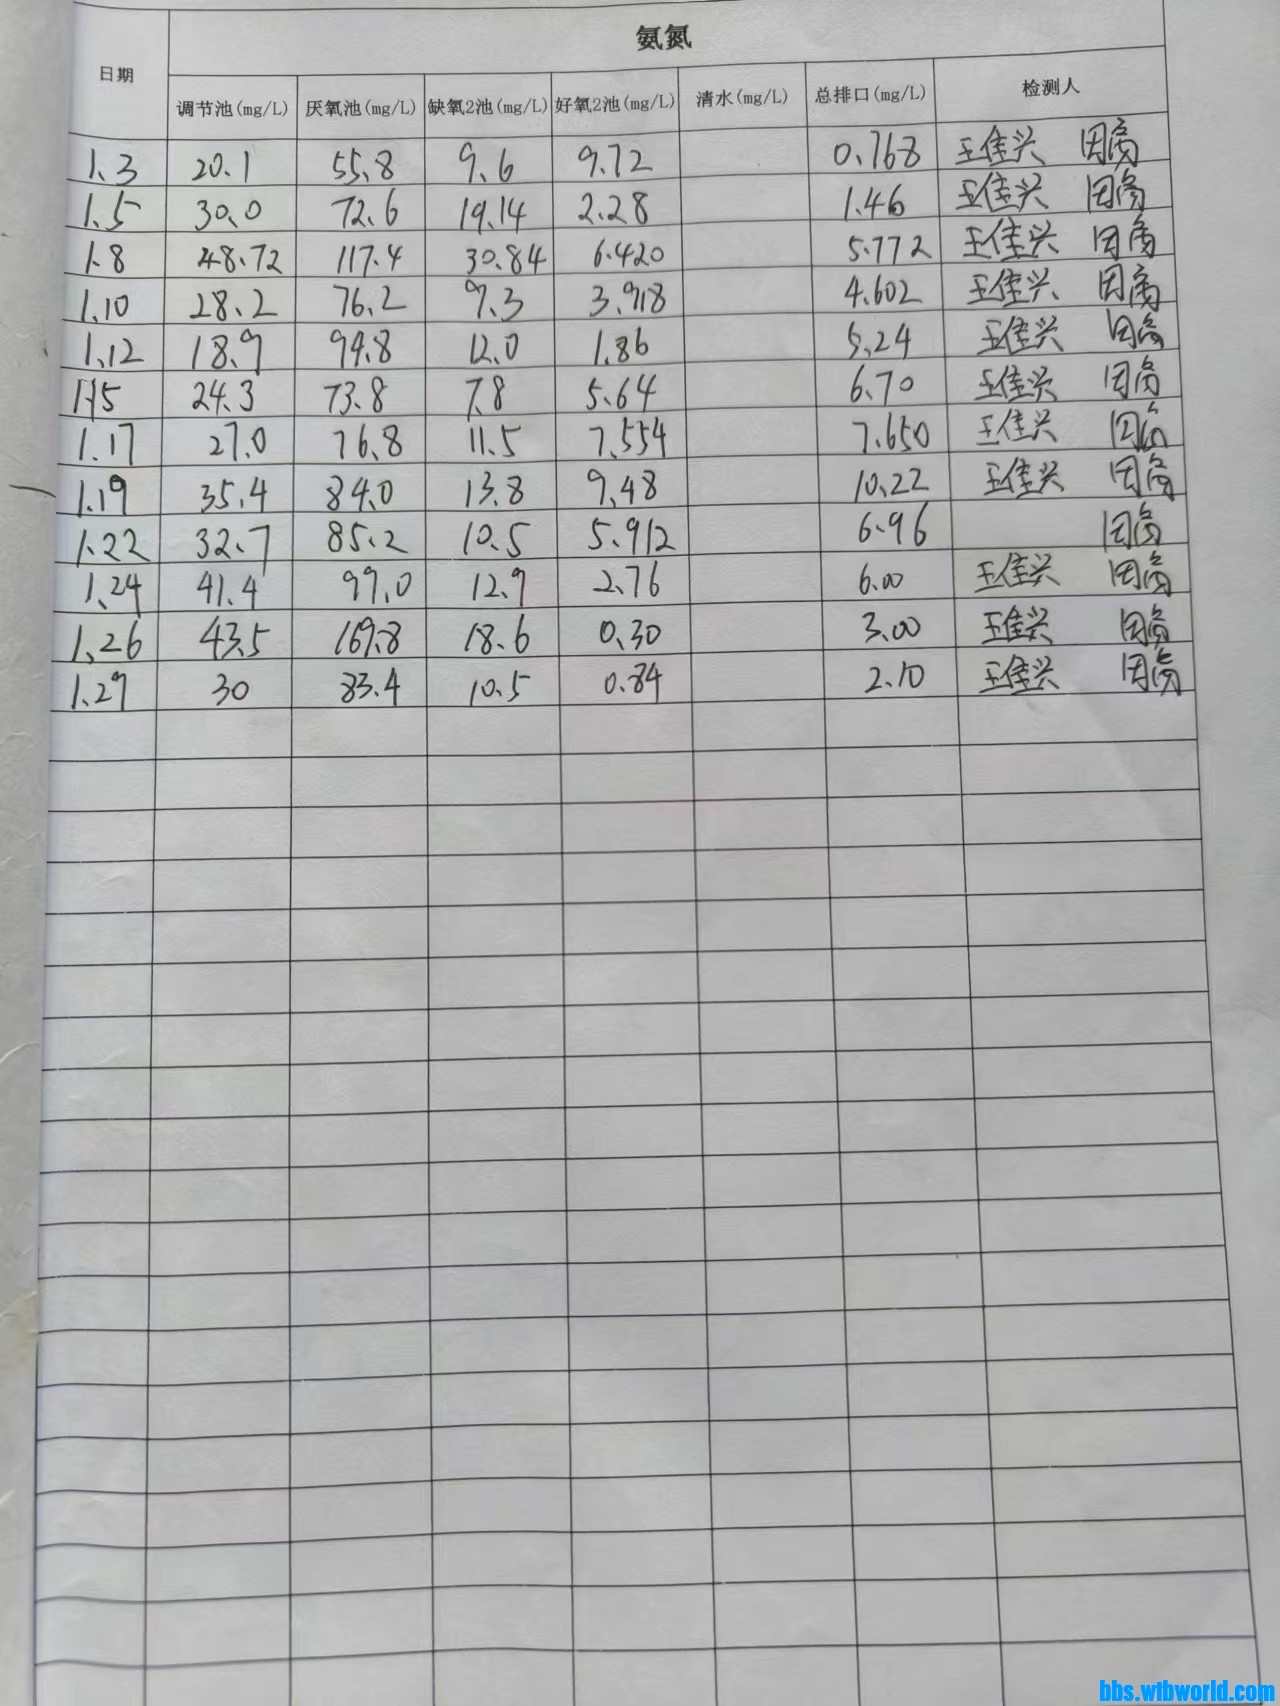 氨氮
日期 调节池(mg/L) 厌氧池(mg/L) 缺氧2池(mg/L) 好氧2池(mg/L) 清水(mg/L) 总排口(mg/L) 检测人
1.3 20.1 55.8 9.6 9.72 0.768 王佳兴
1.5 30.0 72.6 19.14 2.28 1.46 王佳兴
1.8 48.72 117.4 30.84 6.420 5.772 王佳兴
1.10 28.2 76.2 9.3 3.918 4.602 王佳兴
1.12 18.9 94.8 12.0 1.86 5.24 王佳兴
1.15 24.3 73.8 7.8 5.64 6.70 王佳兴
1.17 27.0 76.8 11.5 7.554 7.650 王佳兴
1.19 35.4 84.0 13.8 9.48 10.22 王佳兴
1.22 32.7 85.2 10.5 5.912 6.96
1.24 41.4 99.0 12.9 2.76 6.00 王佳兴
1.26 43.5 169.8 18.6 0.30 3.00 王佳兴
1.29 30 83.4 10.5 0.84 2.10 王佳兴
bbs.wibworld.com